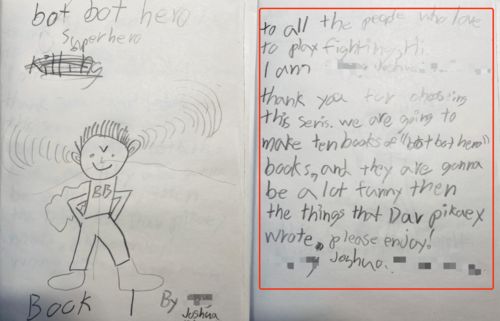 bot bot hero
Superhero
Killing
BB
Book 1
By
Joshua
to all the people who love
to play fighting. Hi.
I am Joshua.
thank you for choosing
this seris. we are going to
make ten books of "bot bot hero"
books, and they are gonna
be a lot funny then
the things that Dav pikaex
wrote, please enjoy!
by Joshua.